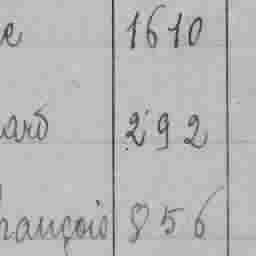 e 1610
ard 292
rançois 856